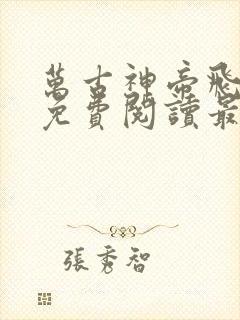 萬古神帝飛
免費閱讀最
張秀智